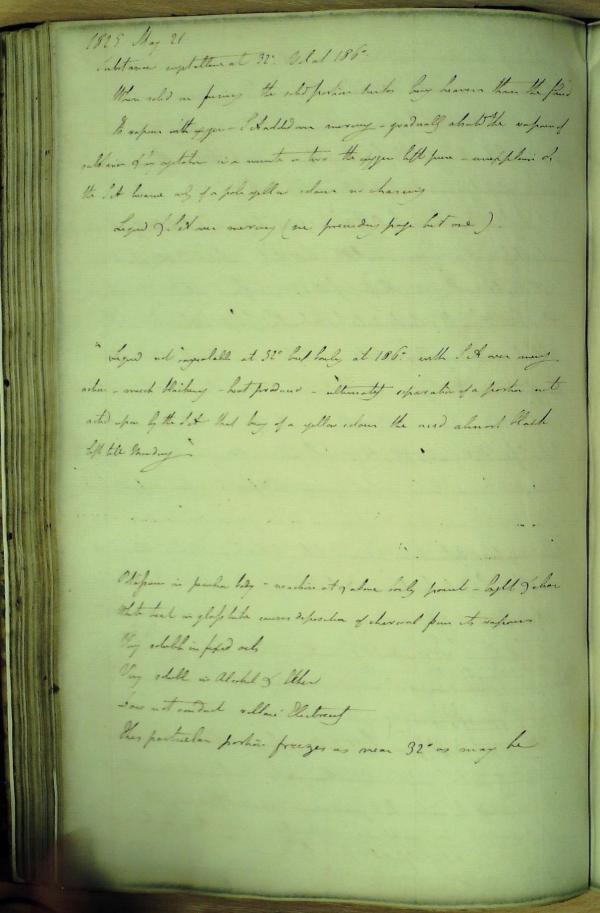 1825 May 21
Substance crystalline at 32° Vol at 186°
When solid in fusing the solid portion sinks being heavier than the fluid
Its vapour with oxygen - S A added over mercury - gradually absorbs the vapour of
substance & by agitation in a minute or two the oxygen left pure -
the S A became only of a pale yellow colour no charring
Liquid & S A over mercury (see preceding page but one).
" Liquid not congealable at 32° but boils at 186° with S A over mercury
action - much blackening - heat produced - ultimately separation of a portion not
acted upon by the S A that being of a yellow colour the acid almost black
left till Monday "
Potassium in peculiar body - no action at & above boiling point - bright & clear
White heat in glass tube causes deposition of charcoal from its vapours
Very soluble in fixed oils
Very soluble in Alcohol & Ether
Does not conduct voltaic Electricity
This particular portion freezes as near 32° as may be